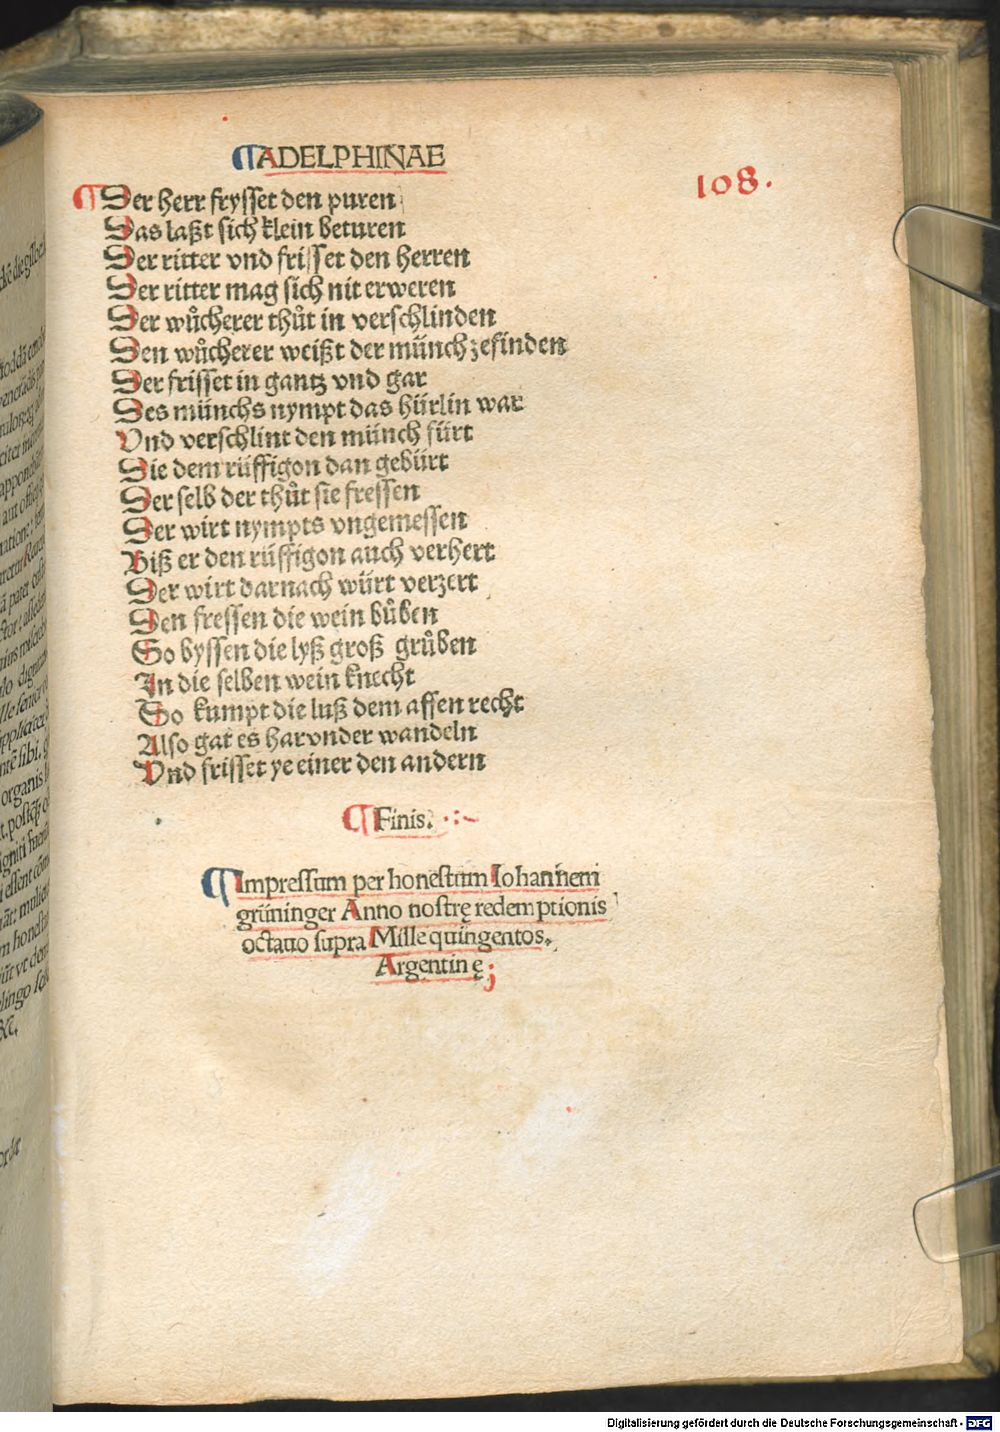 ADELPHINAE
108.
Der herr frysset den puren
Das laßt sich klein beturen
Der ritter vnd frisset den herren
Der ritter mag sich nit erweren
Der wůcherer thůt in verschlinden
Den wůcherer weißt der münch zefinden
Der frisset in gantz vnd gar
Des münchs nympt das hürlin war
Vnd verschlint den münch fürt
Die dem rüffigon dan gebürt
Der selb der thůt sie fressen
Der wirt nympts vngemessen
Biß er den rüffigon auch verhert
Der wirt darnach würt verzert
Den fressen die wein bůben
So byssen die lyß groß grůben
In die selben wein knecht
So kumpt die luß dem affen recht
Also gat es harvnder wandeln
Vnd frisset ye einer den andern
Finis.
Impressum per honestum Iohannem
grüninger Anno nostrę redemptionis
octauo supra Mille quingentos.
Argentinę;
Digitalisierung gefördert durch die Deutsche Forschungsgemeinschaft - DFG